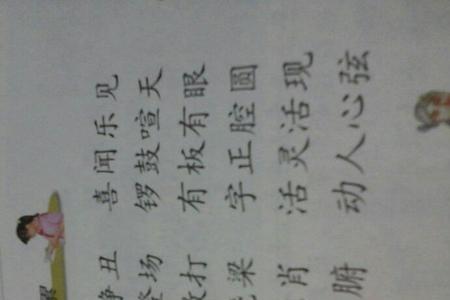 丑 喜闻乐见
登场 锣鼓喧天
打 有板有眼
梁 字正腔圆
肖 活灵活现
腑 动人心弦